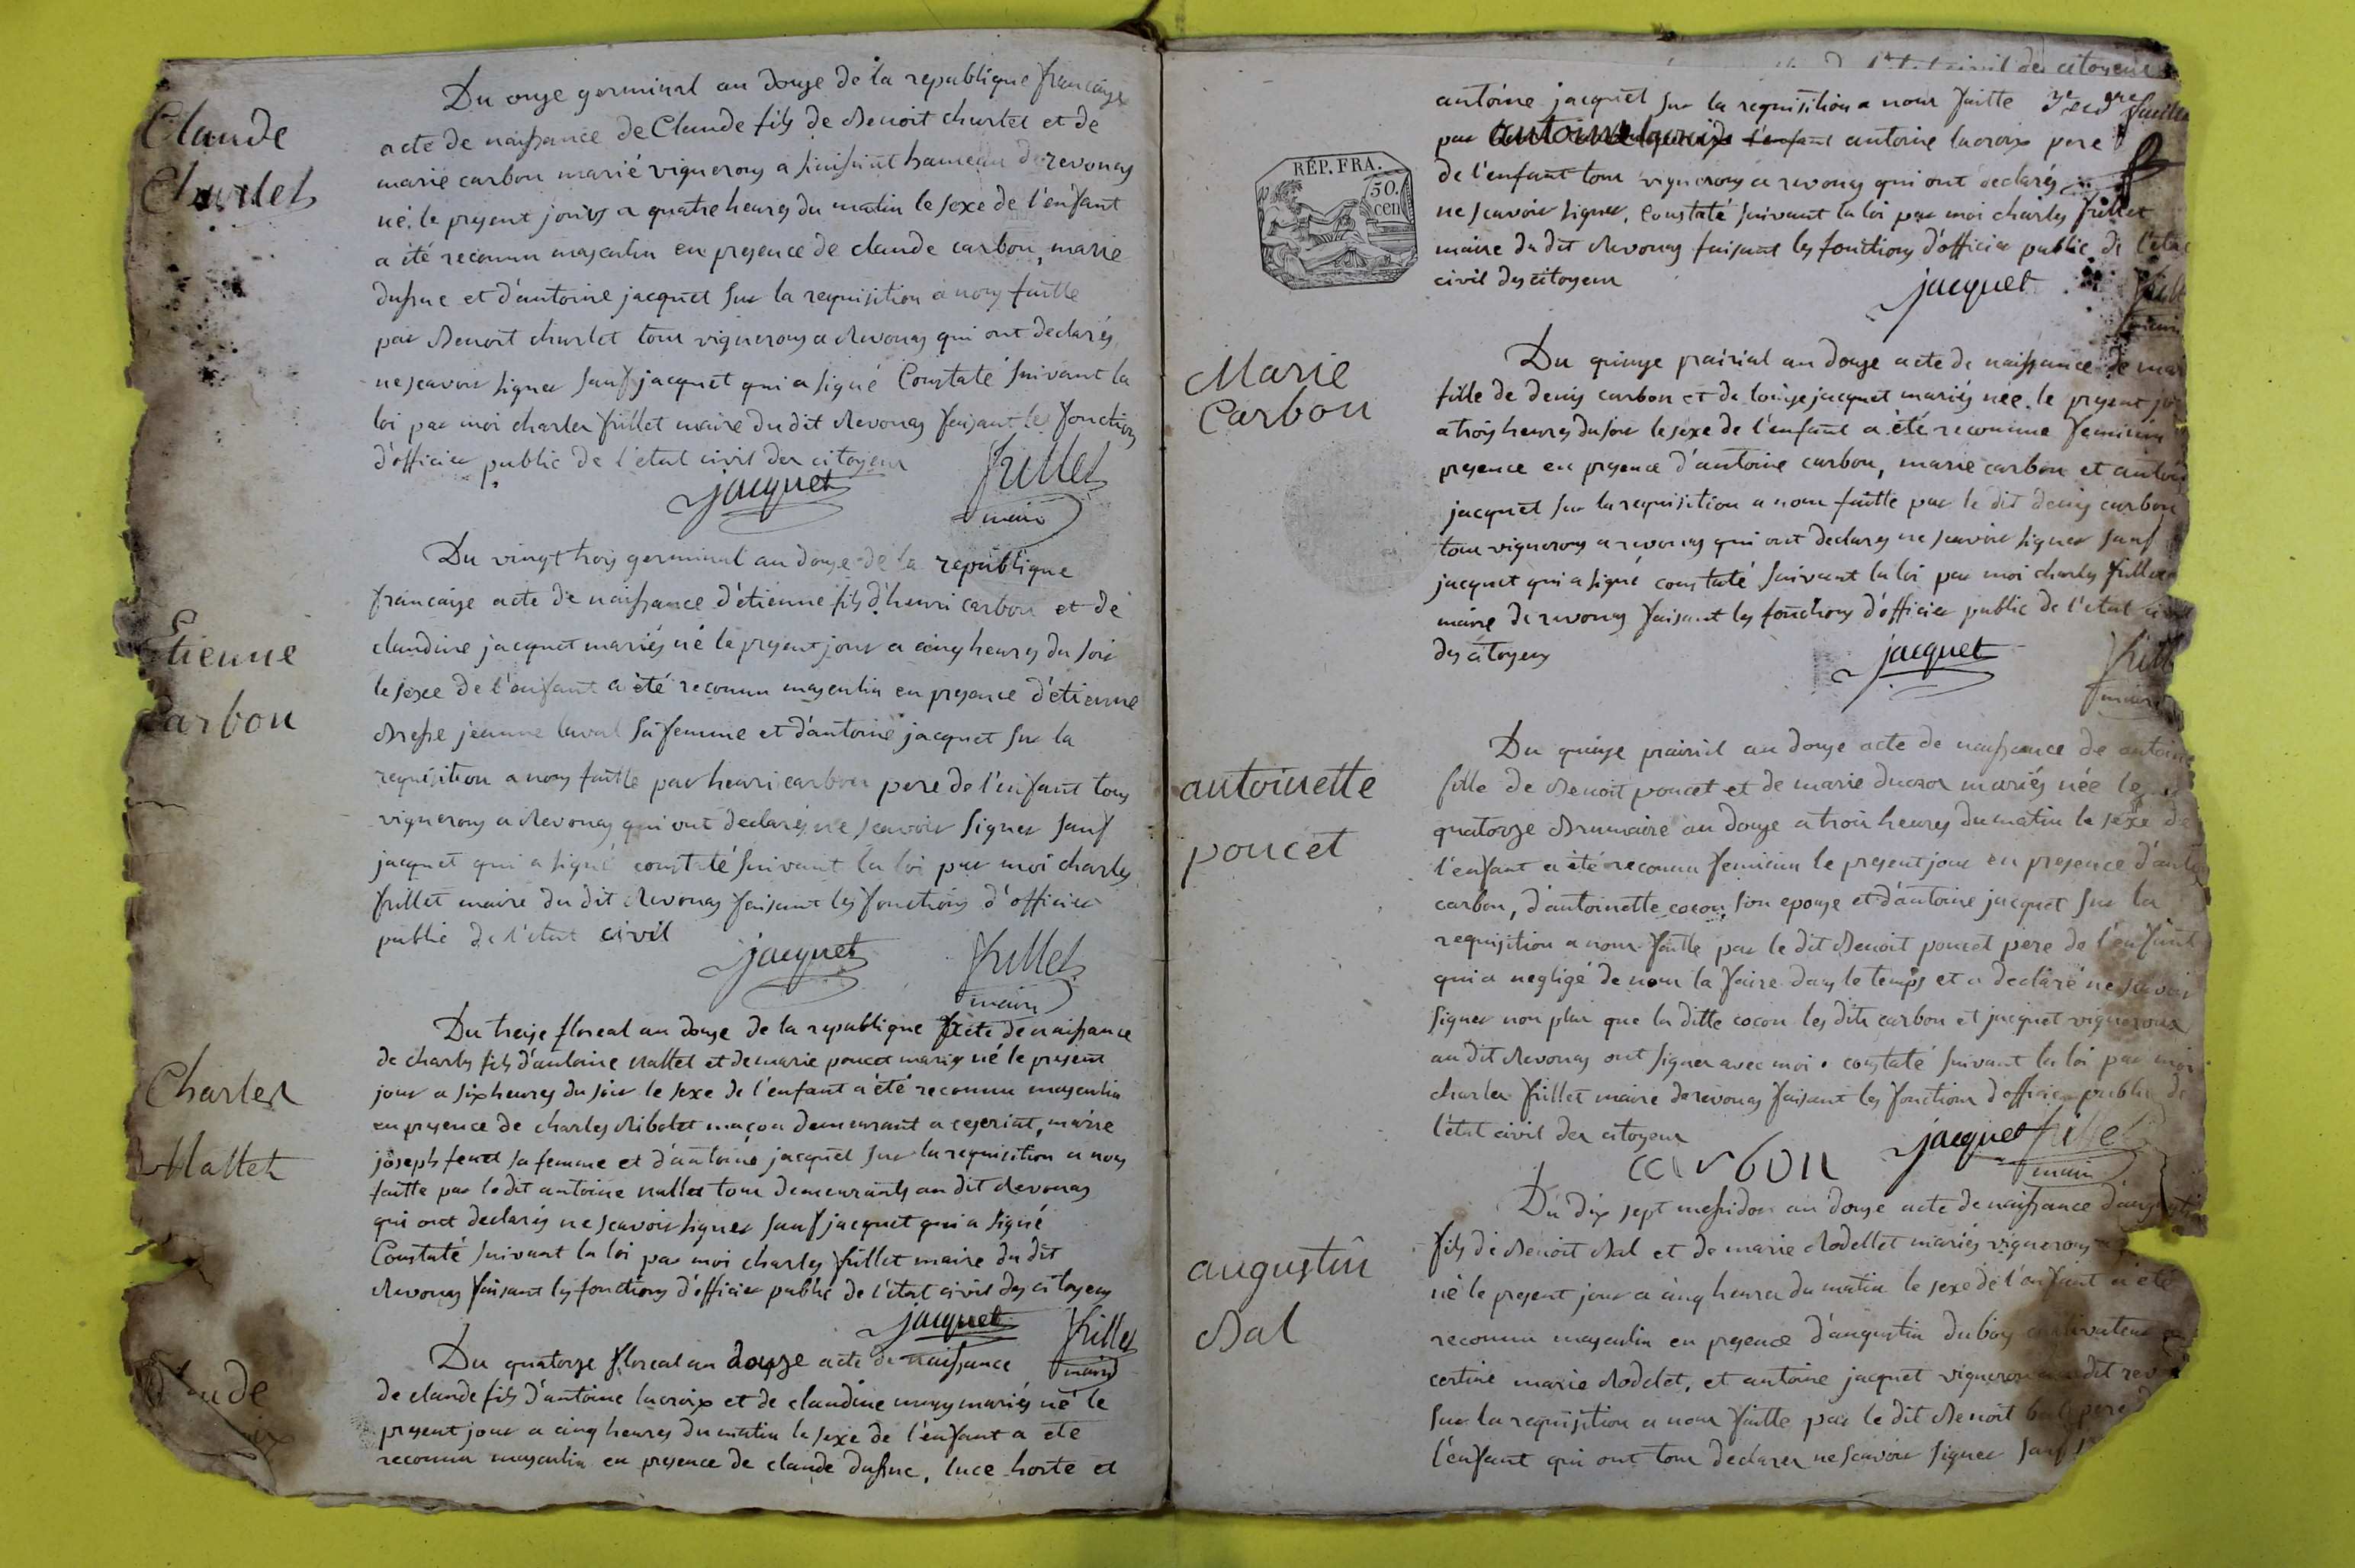 Claude
Charlet
Du onze germinal an douze de la republique francaise
acte de naissance de Claude fils de Benoit charlet et de
marie carbon marié vignerons a hameau de revonas
né le present jours a quatre heures du matin le sexe de l'enfant
a été reconnu masculin en presence de claude carbon, marie
et d'antoine jacquet sur la requisition a nous faitte
par Benoit charlet tous vignerons a Revonas qui ont declarés
ne scavoir signer sauf jacquet qui a signé Constaté suivant la
loi par moi charles frillet maire du dit Revonas faisant les fonctions
d'officier public de l'etat civil des citoyens
jacquet frillet
maire
Etienne
Carbon
Du vingt trois germinal an douze de la republique
francaise acte de naissance d'étienne fils d'henri carbon et de
claudine jacquet mariés né le present jour a cinq heures du soir
le sexe de l'enfant a été reconnu masculin en presence d'étienne
jeanne laval sa femme et d'antoine jacquet sur la
requisition a nous faitte par henri carbon pere de l'enfant tous
vignerons a Revonas qui ont declarés ne scavoir signer sauf
jacquet qui a signé constaté suivant la loi par moi charles
frillet maire du dit Revonas faisant les fonctions d'officier
public de l'etat civil
jacquet frillet
maire
Charles
Nallet
Du treize floreal an douze de la republique acte de naissance
de charles fils d'antoine nallet et de marie poncet mariés né le present
jour a six heures du soir le sexe de l'enfant a été reconnu masculin
en presence de charles Ribolet maçon demeurant a ceyseriat, marie
joseph sa femme et d'antoine jacquet sur la requisition a nous
faitte par le dit antoine nallet tous demeurants au dit Revonas
qui ont declarés ne scavoir signer sauf jacquet qui a signé
Constaté suivant la loi par moi charles frillet maire du dit
Revonas faisant les fonctions d'officier public de l'état civil des citoyens
jacquet frillet
maire
Du quatorze floreal an douze acte de naissance
de claude fils d'antoine lacroix et de claudine mariés né le
present jour a cinq heures du matin le sexe de l'enfant a été
reconnu masculin en presence de claude luce horte et
antoine jacquet sur la requisition a nous faitte
par antoine lacroix pere
de l'enfant tous vignerons a revonas qui ont declarés
ne scavoir signer, Constaté suivant la loi par moi charles frillet
maire du dit Revonas faisant les fonctions d'officier public de l'etat
civil des citoyens
jacquet
RÉP. FRA.
50.
cen
Marie
Carbon
Du quinze prairial an douze acte de naissance de
fille de denis carbon et de louise jacquet mariés née le present
a trois heures du soir le sexe de l'enfant a été reconnue feminin
presence en presence d'antoine carbon, marie carbon et
jacquet sur la requisition a nous faitte par le dit denis carbon
tous vignerons a revonas qui ont declarés ne scavoir signer sauf
jacquet qui a signé constaté suivant la loi par moi charles frillet
maire de revonas faisant les fonctions d'officier public de l'etat
des citoyens
jacquet
antoinette
poncet
Du quinze prairial an douze acte de naissance de
fille de Benoit poncet et de marie mariés née le
quatorze Brumaire an douze a trois heures du matin le sexe de
l'enfant a été reconnu feminin le present jour en presence
carbon, d'antoinette cocon, son epouse et d'antoine jacquet sur la
requisition a nous faitte par le dit Benoit poncet pere de l'enfant
qui a negligé de nous la faire dans le temps et a declaré ne scavoir
signer non plus que la ditte cocon les dits carbon et jacquet vignerons
au dit Revonas ont signer avec moi. constaté suivant la loi par moi
charles frillet maire de revonas faisant les fonctions d'officier public de
l'état civil des citoyens
carbon jacquet frillet
maire
augustin
Bal
Du dix sept messidor an douze acte de naissance
fils de Benoit Bal et de marie Rodellet mariés vignerons
né le present jour a cinq heures du matin le sexe de l'enfant a été
reconnu masculin en presence d'augustin dubois cultivateur
certine marie Rodelet, et antoine jacquet vigneron
sur la requisition a nous faitte par le dit Benoit bal pere
l'enfant qui ont tous declarer ne scavoir signer sauf